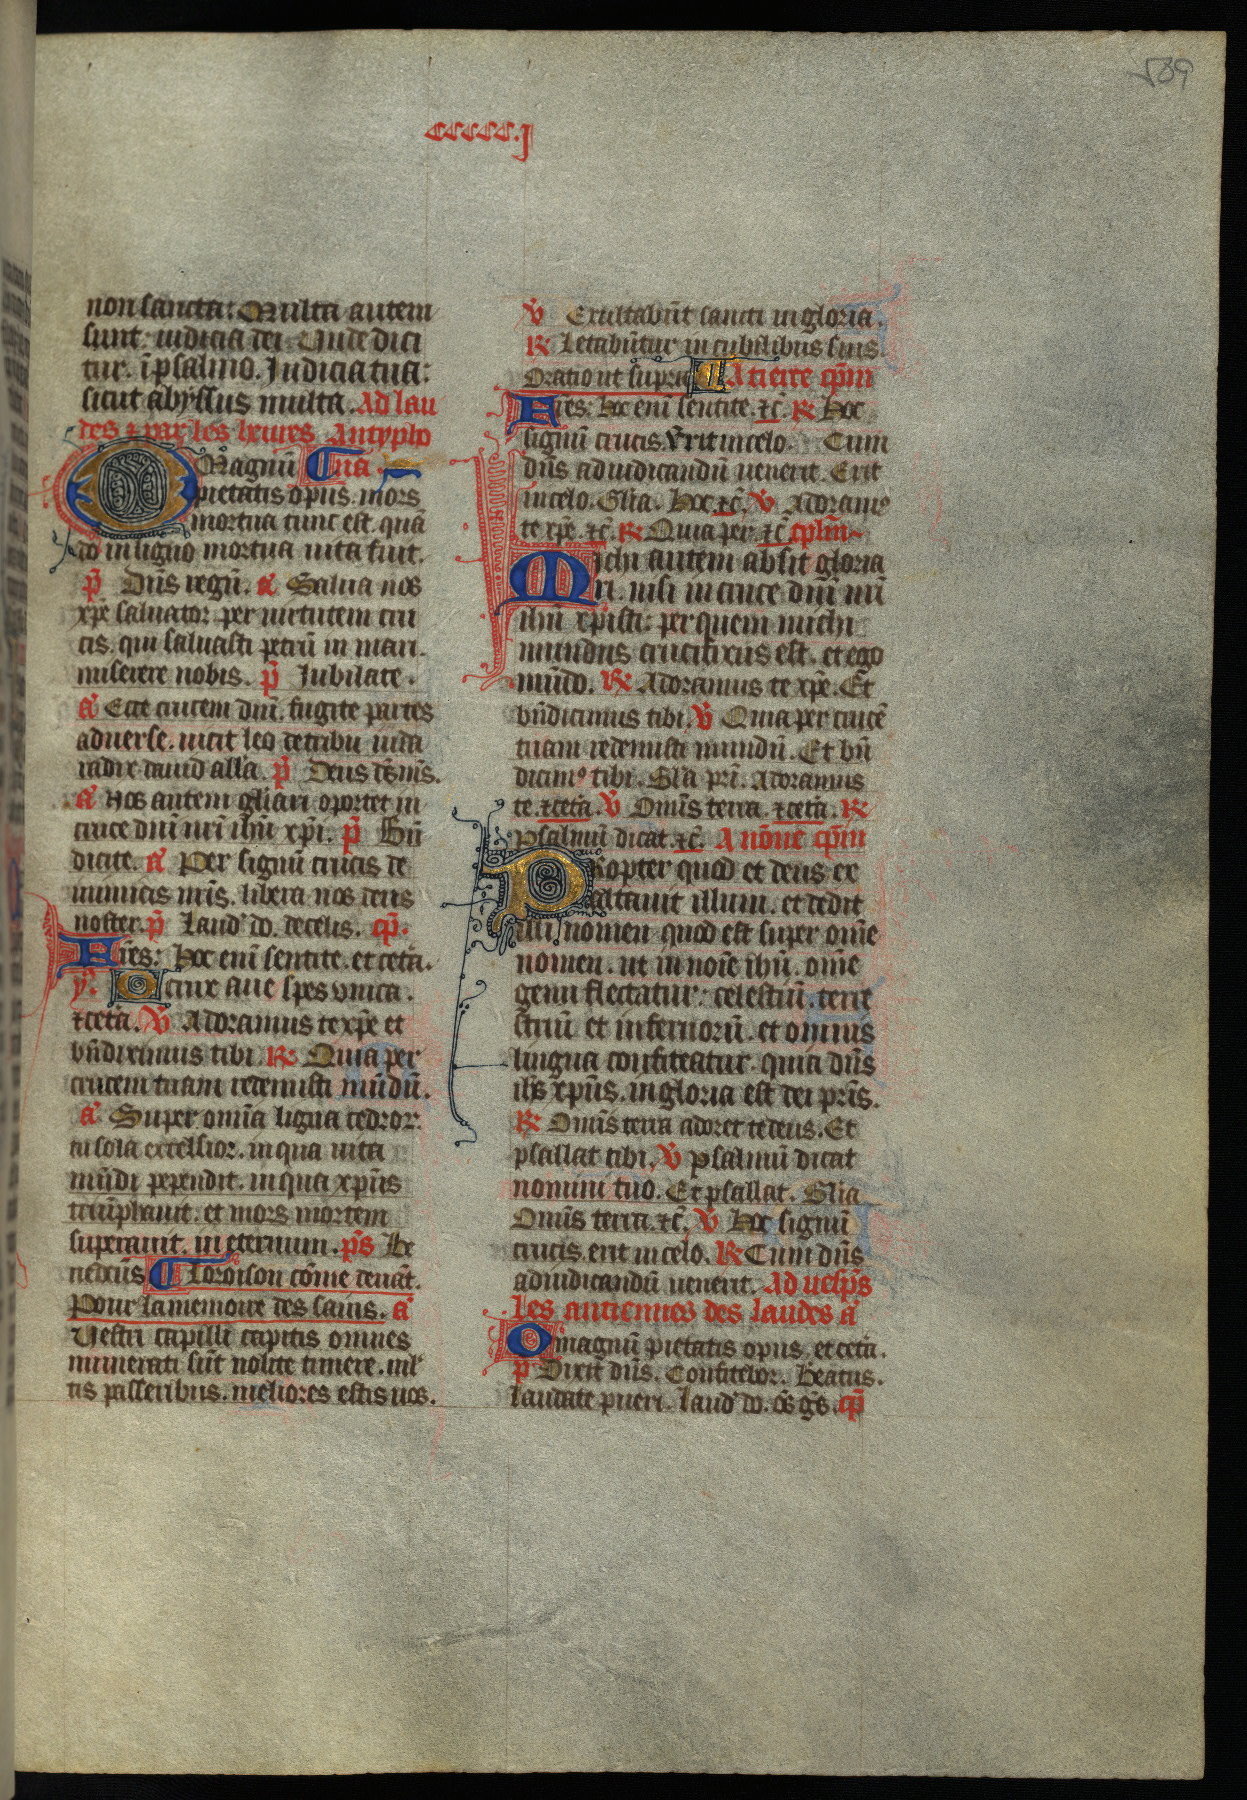 589
ccccc.j
non sancta: Multa autem
sunt iudicia dei Unde dici
tur. ī psalmo. Judicia tua:
sicut abyssus multa. Ad lau
des ⁊ par les heures Antypho
O Magnū Cna
pietatis opus. mors
mortua tunc est. quā
do in ligno mortua uita fuit.
p̄ Dn̄s regn̄. a̾ Salua nos
xp̄e saluator. per uirtutem cru
cis. qui saluasti petrū in mari.
miserere nobis. p̄ Jubilate.
a̾ Ecce crucem dn̄i. fugite partes
aduerse. uicit leo de tribu iuda
radix dauid all'a. p̄ Deus ds̄ ms̄.
a̾ Nos autem gl̄iari oportet in
cruce dn̄i nr̄i ihū xp̄i. p̄ Bn̄
dicite. a̾ Per signū crucis de
inimicis nr̄is. libera nos deus
noster. p̄ Laud' dō. de celis. cp̄.
Fr̄es: Hoc enī sentite. et cetā.
y. O crux aue spes vnica.
⁊cetā. V̄ Adoramus te xp̄e et
bn̄dicimus tibi. R̄ Quia per
crucem tuam redemisti mūdū.
a̾ Super omīa ligna cedror:
tu sola excelsior. in qua uita
mūdi pependit. in qua xp̄us
triūphauit. et mors mortem
superauit. in eternum. ps̄ Be
nedctūs C Loroison cōme deuāt.
Pour la memoire des sains. a̾
Uestri capilli capitis omnes
numerati sūt nolite timere. mĺ
tis passeribus. meliores estis uos.
V̄ Exultabūt sancti in gloria.
R̄ Letabūtur in cubilibus suis.
Oratio ut supra C A tierce cp̄m
Fr̄es: Hoc enī sentite. ⁊c̄. R̄ Hoc
signū crucis. Erit in celo. Cum
dn̄s ad iudicandū uenerit. Erit
in celo. Gl̄ia. Hoc. ⁊c̄. V̄ Adoramꝰ
te xp̄e. ⁊c̄. R̄ Quia per. ⁊c̄. cp̄lm̄
Michi autem absit gloria
ri. nisi in cruce dn̄i nr̄i
ihū xpisti: per quem michi
mundus crucifixus est. et ego
mūdo. R̄ Adoramus te xp̄e. Et
bn̄dicimus tibi. V̄ Quia per crucē
tuam redemisti mundū. Et bn̄
dicimꝰ tibi. Gl'a pr̄i. Adoramus
te. ⁊cetā. V̄ Omīs terra. ⁊cetā. R̄
Psalmū dicat ⁊c̄. A nōne cp̄m
Propter quod et deus ex
altauit illum. et dedit
illi nomen quod est super om̄e
nomen. ut in noīe ihū. om̄e
genu flectatur: celestiū. terre
striū et infernorū. et omnis
lingua confiteatur. quia dn̄s
ih̄s xp̄us. in gloria est dei pr̄is.
R̄ Omīs terra adoret te deus. Et
psallat tibi. V̄ psalmū dicat
nomini tuo. Et psallat. Gl̄ia
Omīs terra. ⁊c̄. V̄ Hoc signū
crucis. erit in celo. R̄ Cum dn̄s
ad iudicandū uenerit. Ad uesp̄s
les antiennes des laudes a̾
O magnū pietatis opus. et cetā.
p̄ Dixit dn̄s. Confitebor. Beatus.
Laudate pueri. Laud' dō. ōs gēs. cp̄